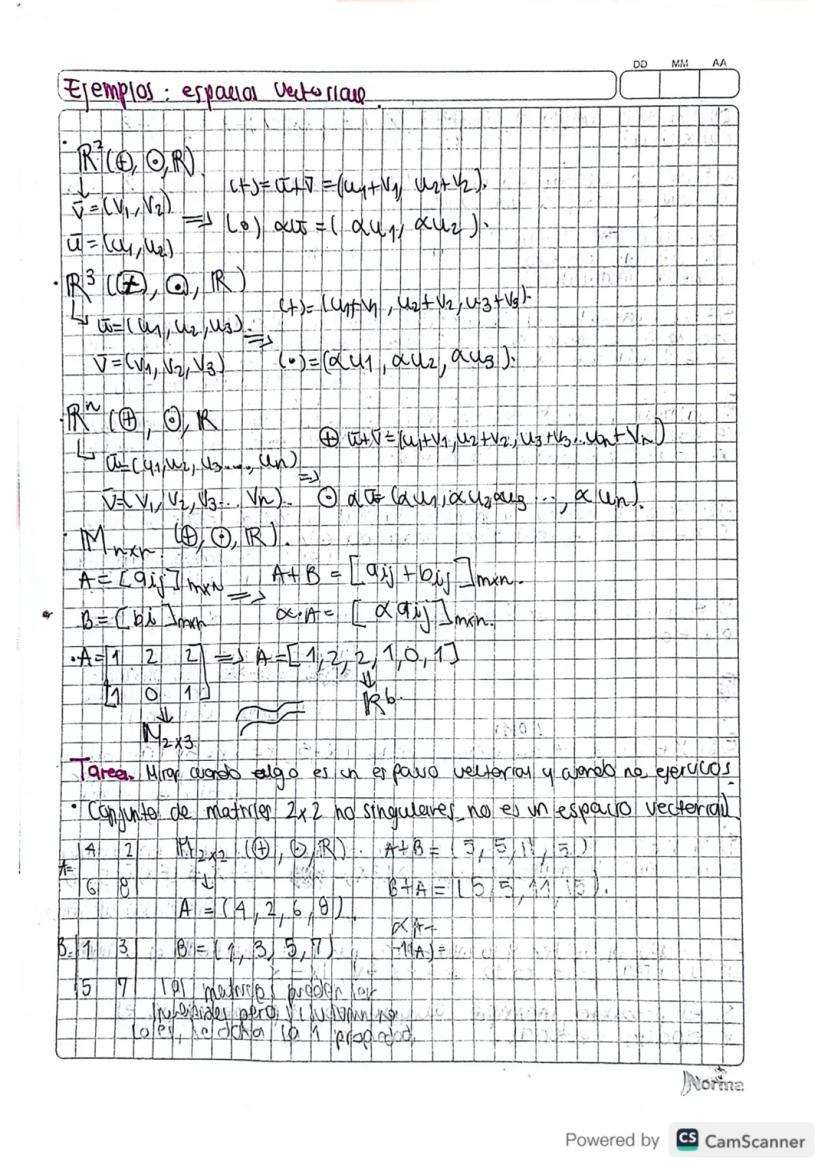 DD MM AA
Ejemplos: espacios vectoriales
R² (⊕, ⊙, R)
v̅ = (v1, v2)
u̅ = (u1, u2)
⇒ (+) = u̅+v̅ = (u1+v1, u2+v2).
(•) αu̅ = (αu1, αu2).
• R³ (⊕, ⊙, R)
u̅ = (u1, u2, u3). ⇒
v̅ = (v1, v2, v3)
(+) = (u1+v1, u2+v2, u3+v3).
(•) = (αu1, αu2, αu3).
• Rⁿ (⊕, ⊙, R
u̅ = (u1, u2, u3..., un) ⇒
v̅ = (v1, v2, v3... vn).
⊕ u̅+v̅ = (u1+v1, u2+v2, u3+v3...un+vn)
⊙ αu̅ = (αu1, αu2 αu3 ..., αun).
• Mmxn. (⊕, ⊙, R).
A = [aij]mxn ⇒ A+B = [aij+bij]mxn.
B = [bi]mxn α.A = [αaij]mxn.
• A = [1 2 2 ⇒ A = [1, 2, 2, 1, 0, 1]
1 0 1] ⇓ R6.
⇓
M2x3
Tarea. Mirar cuando algo es un espacio vectorial y cuando no, ejercicios.
• Conjunto de matrices 2x2 no singulares no es un espacio vectorial
A= 4 2 M2x2 (⊕, ⊙, R). A+B = (5, 5, 11, 15)
6 8 ↓ B+A = (5, 5, 11, 15).
A = (4, 2, 6, 8). αA=
B= 1 3 B = (1, 3, 5, 7) -1(A) =
5 7 las matrices pueden ser
pero si su suma no
lo es, la 1 propiedad.
Norma
Powered by CS CamScanner